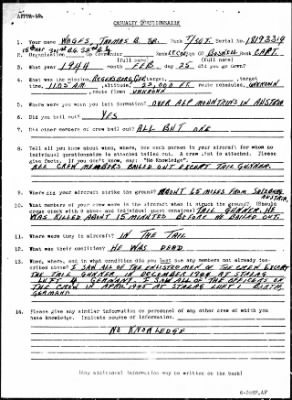 CASUALTY QUESTIONNAIRE
1. Your name WOLFS, THOMAS B. SR. Rank T/SGT. Serial No.
2. Organization Gp Commander Rank CAPT.
(full name) (full name)
3. What year 1944 month FEB. day 25 did you go down?
4. What was the mission, REGENSBURG GER. target,
time, 1105 AM, altitude, 22,000 FT. route scheduled, UNKNOWN
route flown UNKNOWN
5. Where were you when you left formation? OVER ALP MOUNTAINS IN AUSTRIA
6. Did you bail out? YES
7. Did other members of crew bail out? ALL BUT ONE
8. Tell all you know about when, where, how each person in your aircraft for whom no
individual questionnaire is attached bailed out. A crew list is attached. Please
give facts. If you don't know, say: "No Knowledge".
ALL CREW MEMBERS BAILED OUT EXCEPT TAIL GUNNER.
9. Where did your aircraft strike the ground? ABOUT 65 MILES FROM SALZBURG
AUSTRIA.
10. What members of your crew were in the aircraft when it struck the ground? (Should
cross check with 8 above and individual questionnaires) TAIL GUNNER. HE
WAS KILLED ABOUT 15 MINUTES BEFORE HE BAILED OUT.
11. Where were they in aircraft? IN THE TAIL
12. What was their condition? HE WAS DEAD
13. When, where, and in what condition did you last see any members not already de-
scribed above? I SAW ALL OF THE ENLISTED MEN OF THE CREW EXCEPT
THE TAIL GUNNER, IN DECEMBER 1944 AT STALAG
LUFT 4 GERMANY. I SAW ALL OF THE OFFICERS OF
THE CREW IN APRIL 1945 AT STALAG LUFT 1 BARTH,
GERMANY
14. Please give any similar information on personnel of any other crew of which you
have knowledge. Indicate source of information.
NO KNOWLEDGE
(Any additional information may be written on the back)